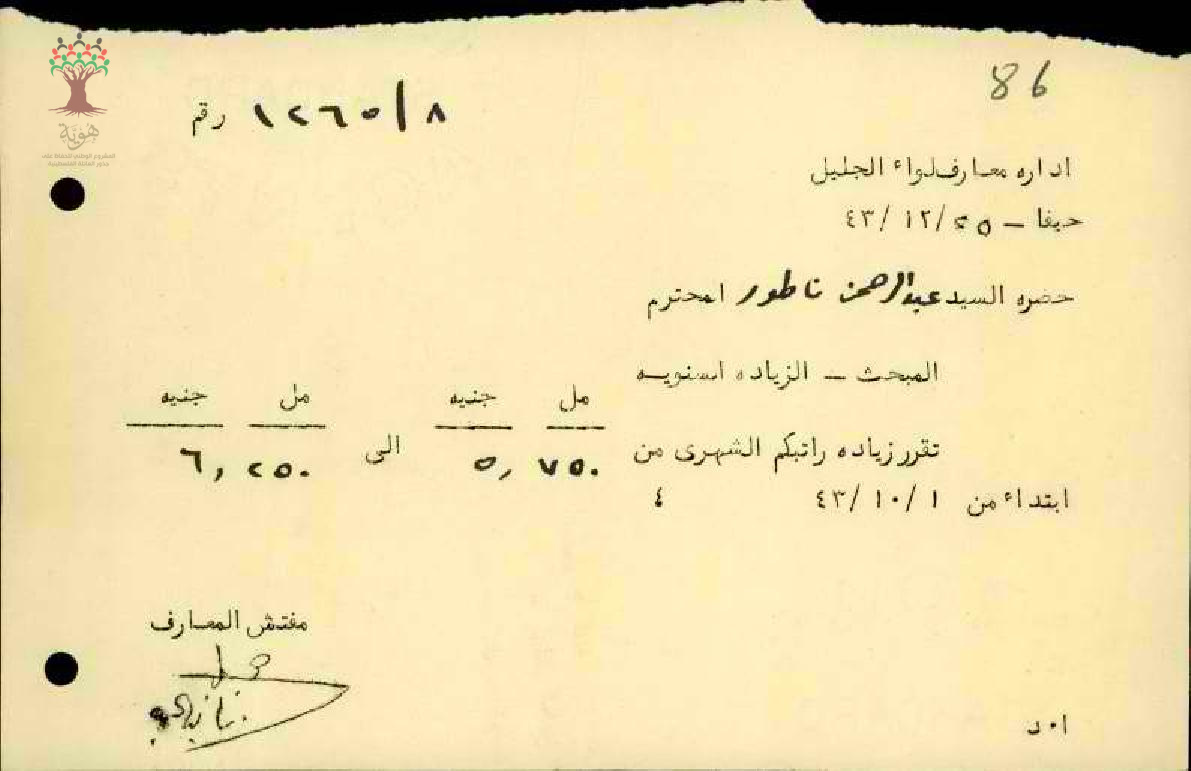 86
هوية
رقم ١٢٦٥/٨
اداره معارف لواء الجليل
حيفا – ٢٥/١٢/٤٣
حضره السيد عبدالرحمن ناطور المحترم
المبحث – الزياده السنويه
مل جنيه مل جنيه
تقرر زياده راتبكم الشهرى من ٥,٧٥٠ الى ٦,٢٥٠
ابتداء من ٤٣/١٠/١ ؛
مفتش المعارف